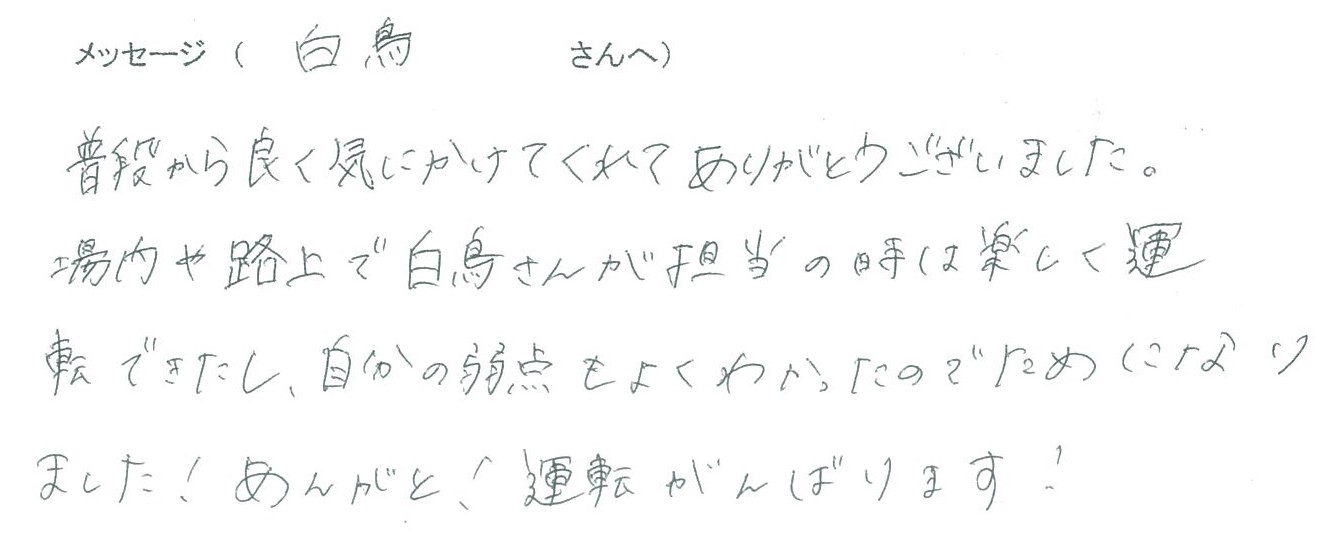 メッセージ（ 白鳥 さんへ）
普段から良く気にかけてくれてありがとうございました。
場内や路上で白鳥さんが担当の時は楽しく運
転できたし、自分の弱点もよくわかったのでためになり
ました！あんがと！運転がんばります！